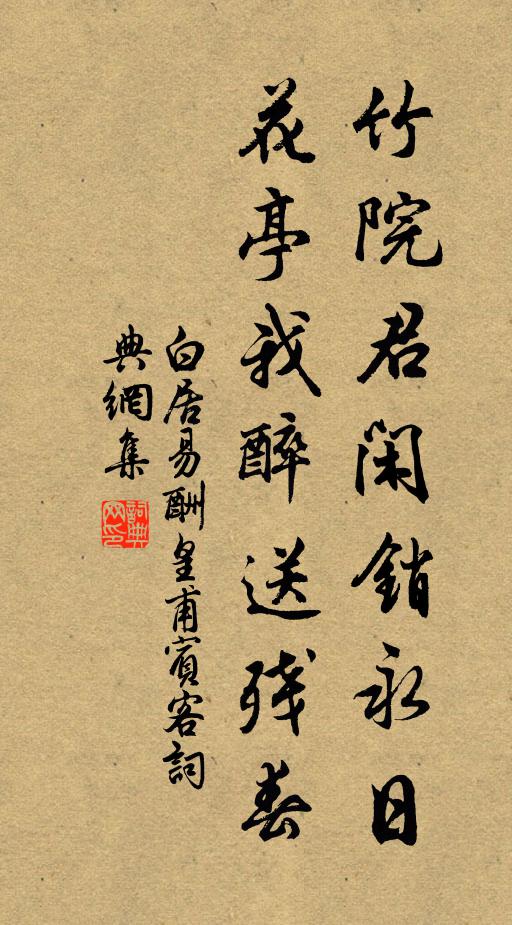 竹院君閑銷永日
花亭我醉送殘春
白居易酬皇甫賓客詞
典網集
詞典
网印